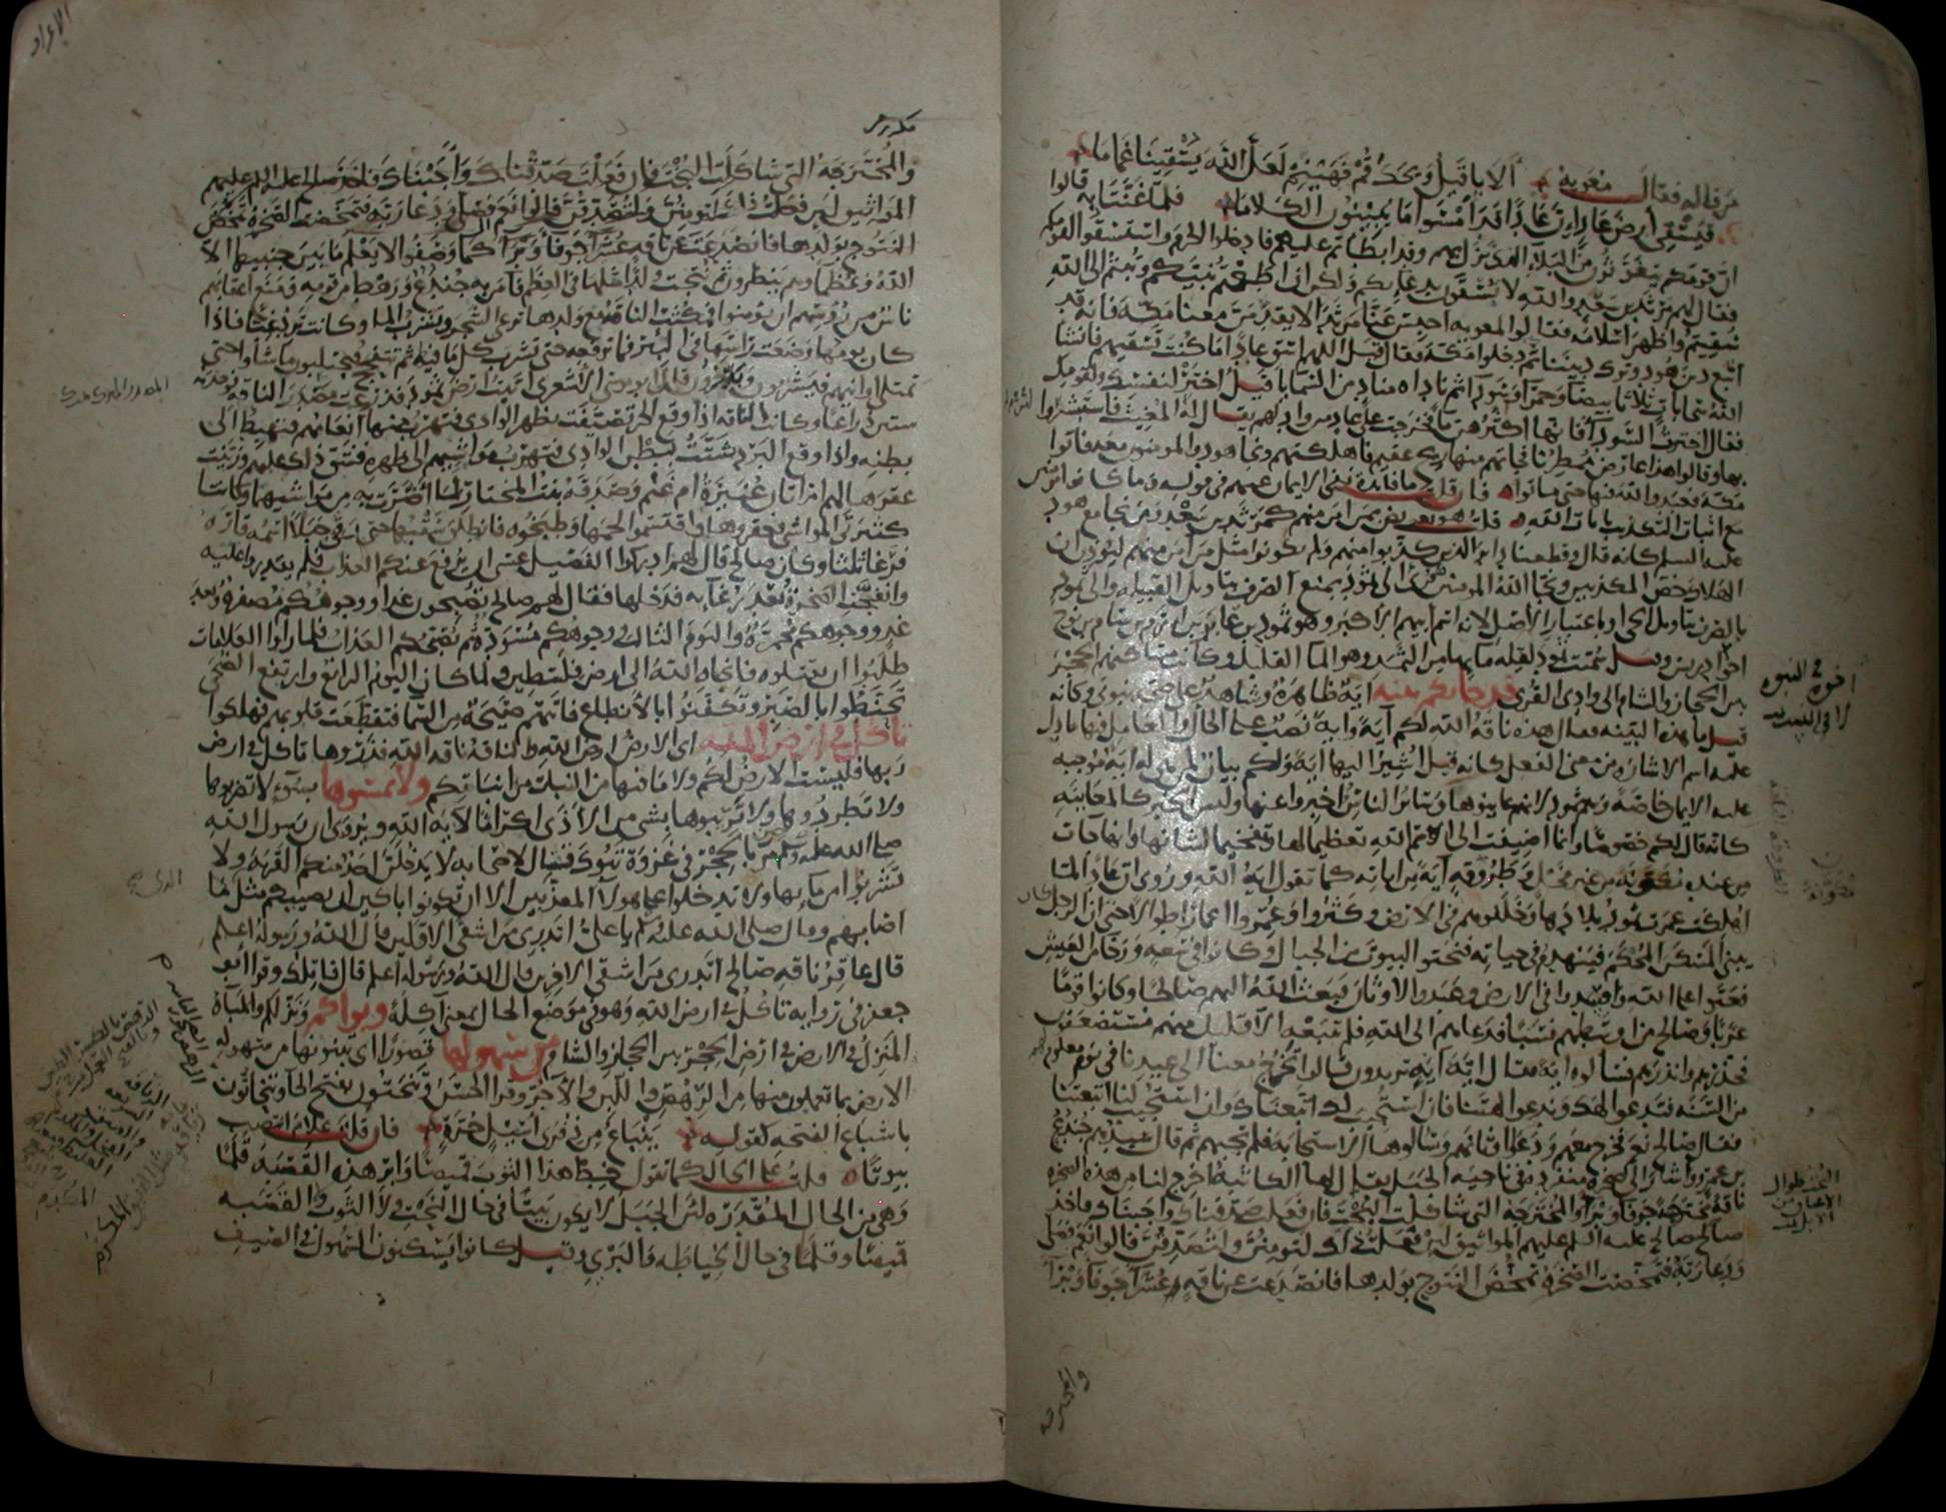 من قاله فقال معوية ألا يا قيل ويحك قم فهينم لعل الله يسقينا غماما
فيسقي أرض عاد إن عادا قد أمسوا ما يبينون الكلاما فلما غنتا به قالوا
ان قومكم يتغوثون من البلاء الذي نزل بهم وقد ابطأتم عليهم فادخلوا الحرم واستسقوا لقومكم
فقال لهم مرثد بن سعد والله لا تسقون بدعائكم ولكن ان اطعتم نبيكم وتبتم الى الله
سقيتم واظهر اسلامه فقالوا لمعوية احبس عنا مرثدا لا يقدمن معنا مكة فانه قد
اتبع دين هود وترك ديننا ثم دخلوا مكة فقال قيل اللهم اسق عادا ما كنت تسقيهم فانشأ
الله سحابات ثلاثا بيضا وحمرا وسودا ثم ناداه مناد من السماء يا قيل اختر لنفسك ولقومك
فقال اخترت السودا فانها اكثرهن ما فخرجت على عاد من واد لهم يقال له المغيث فاستبشروا
بها وقالوا هذا عارض ممطرنا فجاتهم منها ريح عقيم فاهلكتهم ونجا هود والمومنون معه فاتوا
مكة فعبدوا الله فيها حتى ماتوا فان قلت ما فائدة نفي الايمان عنهم في قوله وما كانوا مومنين
مع اثبات التكذيب بايات الله قلت هو تعريض بمن امن منهم كمرثد بن سعد ومن نجا مع هود
عليه السلم كانه قال وقطعنا دابر الذين كذبوا منهم ولم يكونوا مثل من امن منهم ليوذن ان
الهلاك خص المكذبين ونجا الله المومنين والى ثمود بمنع الصرف بتاويل القبيلة والى ثمود
بالصرف بتاويل الحي او باعتبار الاصل لانه اسم ابيهم الاكبر وهو ثمود بن عابر بن ارم بن سام بن نوح
وقيل سميت ثمود لقلة مايها من الثمد وهو الما القليل وكانت مساكنهم الحجر
بين الحجاز والشام الى وادي القرى قد جاتكم بينة اية ظاهرة وشاهد على صحة نبوتي وكانه
قيل ما هذه البينة فقال هذه ناقة الله لكم آية واية نصب على الحال والعامل فيها ما دل
عليه اسم الاشارة من معنى الفعل كانه قيل اشير اليها اية ولكم بيان لمن هي له اية موجبة
عليه الايمان خاصة وهم ثمود لانهم عاينوها وسائر الناس اخبروا عنها وليس الخبر كالمعاينة
كانه قال لكم خصوصا وانما اضيفت الى اسم الله تعظيما لها وتفخيما لشانها وانها جات
من عنده مكونة من غير فحل وطروقة آية من اياته كما تقول اية الله وروي ان عادا لما
اهلكت عمرت ثمود بلادها وخلفوهم في الارض وكثروا وعمروا اعمارا طوالا حتى ان الرجل كان
يبني المسكن المحكم فينهدم في حياته فنحتوا البيوت من الجبال وكانوا في سعة ورخا من العيش
فعتوا على الله وافسدوا في الارض وعبدوا الاوثان فبعث الله اليهم صالحا وكانوا قوما
عربا وصالح من اوسطهم نسبا فدعاهم الى الله فلم يتبعه الا قليل منهم مستضعفون
فحذرهم وانذرهم فسالوه اية فقال اية آية تريدون قالوا تخرج معنا الى عيدنا في يوم معلوم
من السنة فتدعو الهك وندعو الهتنا فان استجيب لك اتبعناك وان استجيب لنا اتبعتنا
فقال صالح نعم فخرج معهم ودعوا اوثانهم وسالوها الاستجابة فلم تجبهم ثم قال سيدهم جندع
بن عمرو واشار الى صخرة منفردة في ناحية الجبل يقال لها الكاثبة اخرج لنا من هذه الصخرة
ناقة مخترجة جوفا وبرا والمخترجة التي شاكلت البخت فان فعلت صدقناك واجبناك فاخذ
صالح عليه السلم عليهم المواثيق لئن فعلت ذلك لتومنن ولتصدقن قالوا نعم فصلى
ودعا ربه فتمخضت الصخرة تمخض النتوج بولدها فانصدعت عن ناقة عشرا جوفا وبرا
اخوة في النسب
لا في الدين
البخت طوال
الاعناق من
الابل
مكرر
والمخترجة التي شاكلت البخت فان فعلت صدقناك واجبناك فاخذ صالح عليه السلم عليهم
المواثيق لئن فعلت ذلك لتومنن ولتصدقن قالوا نعم فصلى ودعا ربه فتمخضت الصخرة تمخض
النتوج بولدها فانصدعت عن ناقة عشرا جوفا وبرا كما وصفوا لا يعلم ما بين جنبيها الا
الله وعظماوهم ينظرون ثم نتجت ولدا مثلها في العظم فآمن به جندع ورهط من قومه ومنع اعقابهم
ناس من رؤسهم ان يومنوا فمكثت الناقة مع ولدها ترعى الشجر وتشرب الما وكانت ترد غبا فاذا
كان يومها وضعت راسها في البير فما ترفعه حتى تشرب كل ما فيها ثم تتفحج فيحتلبون ما شاوا حتى
تمتلي اوانيهم فيشربون ويدخرون قال ابو موسى الاشعري اتيت ارض ثمود فذرعت مصدر الناقة فوجدته
ستين ذراعا وكانت الناقة اذا وقع الحر تصيفت بظهر الوادي فتهرب منها انعامهم فتهبط الى
بطنه واذا وقع البرد تشتت ببطن الوادي فتهرب مواشيهم الى ظهره فشق ذلك عليهم وزينت
عقرها لهم امراتان عنيزة ام غنم وصدقة بنت المختار لما اضرت به من مواشيهما وكانتا
كثيرتي المواشي فعقروها واقتسموا لحمها وطبخوه فانطلق سقبها حتى رقي جبلا اسمه قاره
فرغا ثلثا وكان صالح قال لهم ادركوا الفصيل عسى ان يرفع عنكم العذاب فلم يقدروا عليه
وانفجت الصخرة بعد رغائه فدخلها فقال لهم صالح تصبحون غدا ووجوهكم مصفرة وبعد
غد ووجوهكم محمرة واليوم الثالث ووجوهكم مسودة ثم يصبحكم العذاب فلما راوا العلامات
طلبوا ان يقتلوه فانجاه الله الى ارض فلسطين ولما كان اليوم الرابع وارتفع الضحى
تحنطوا بالصبر وتكفنوا بالانطاع فاتتهم صيحة من السما فتقطعت قلوبهم فهلكوا
تاكل في ارض الله اي الارض ارض الله والناقة ناقة الله فذروها تاكل في ارض
ربها فليست الارض لكم ولا ما فيها من النبات من انباتكم ولا تمسوها بسوء لا تضربوها
ولا تطردوها ولا تريبوها بشي من الاذى اكراما لآية الله ويروى ان رسول الله
صلى الله عليه وسلم مر بالحجر في غزوة تبوك فقال لاصحابه لا يدخلن احد منكم القرية ولا
تشربوا من مايها ولا تدخلوا على هولا المعذبين الا ان تكونوا باكين ان يصيبكم مثل ما
اصابهم وقال صلى الله عليه وسلم يا علي اتدري من اشقى الاولين قال الله ورسوله اعلم
قال عاقر ناقة صالح اتدري من اشقى الاخرين قال الله ورسوله اعلم قال قاتلك وقرا ابو
جعفر في رواية تاكل في ارض الله وهو في موضع الحال بمعنى آكلة وبوأكم ونزلكم والمباة
المنزل في الارض في ارض الحجر بين الحجاز والشام من سهولها قصورا اي تبنونها من سهولة
الارض بما تعملون منها من الرهص واللبن والآجر وقرا الحسن وتنحتون بفتح الحا وتنحاتون
باشباع الفتحة كقوله ينباع من ذفرى اسيل حرة فان قلت علام انتصب
بيوتا قلت على الحال كما تقول خط هذا الثوب قميصا وابر هذه القصبة قلما
وهي من الحال المقدرة لان الجبل لا يكون بيتا في حال النحت ولا الثوب والقصبة
قميصا وقلما في حال الخياطة والبري وقيل كانوا يسكنون السهول في الصيف